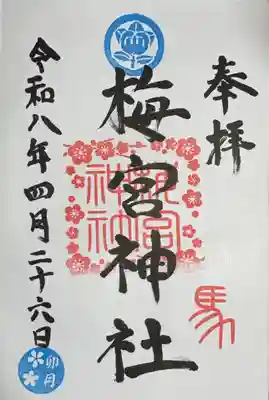 奉拝
馬
梅宮神社
令和八年四月二十六日
卯月